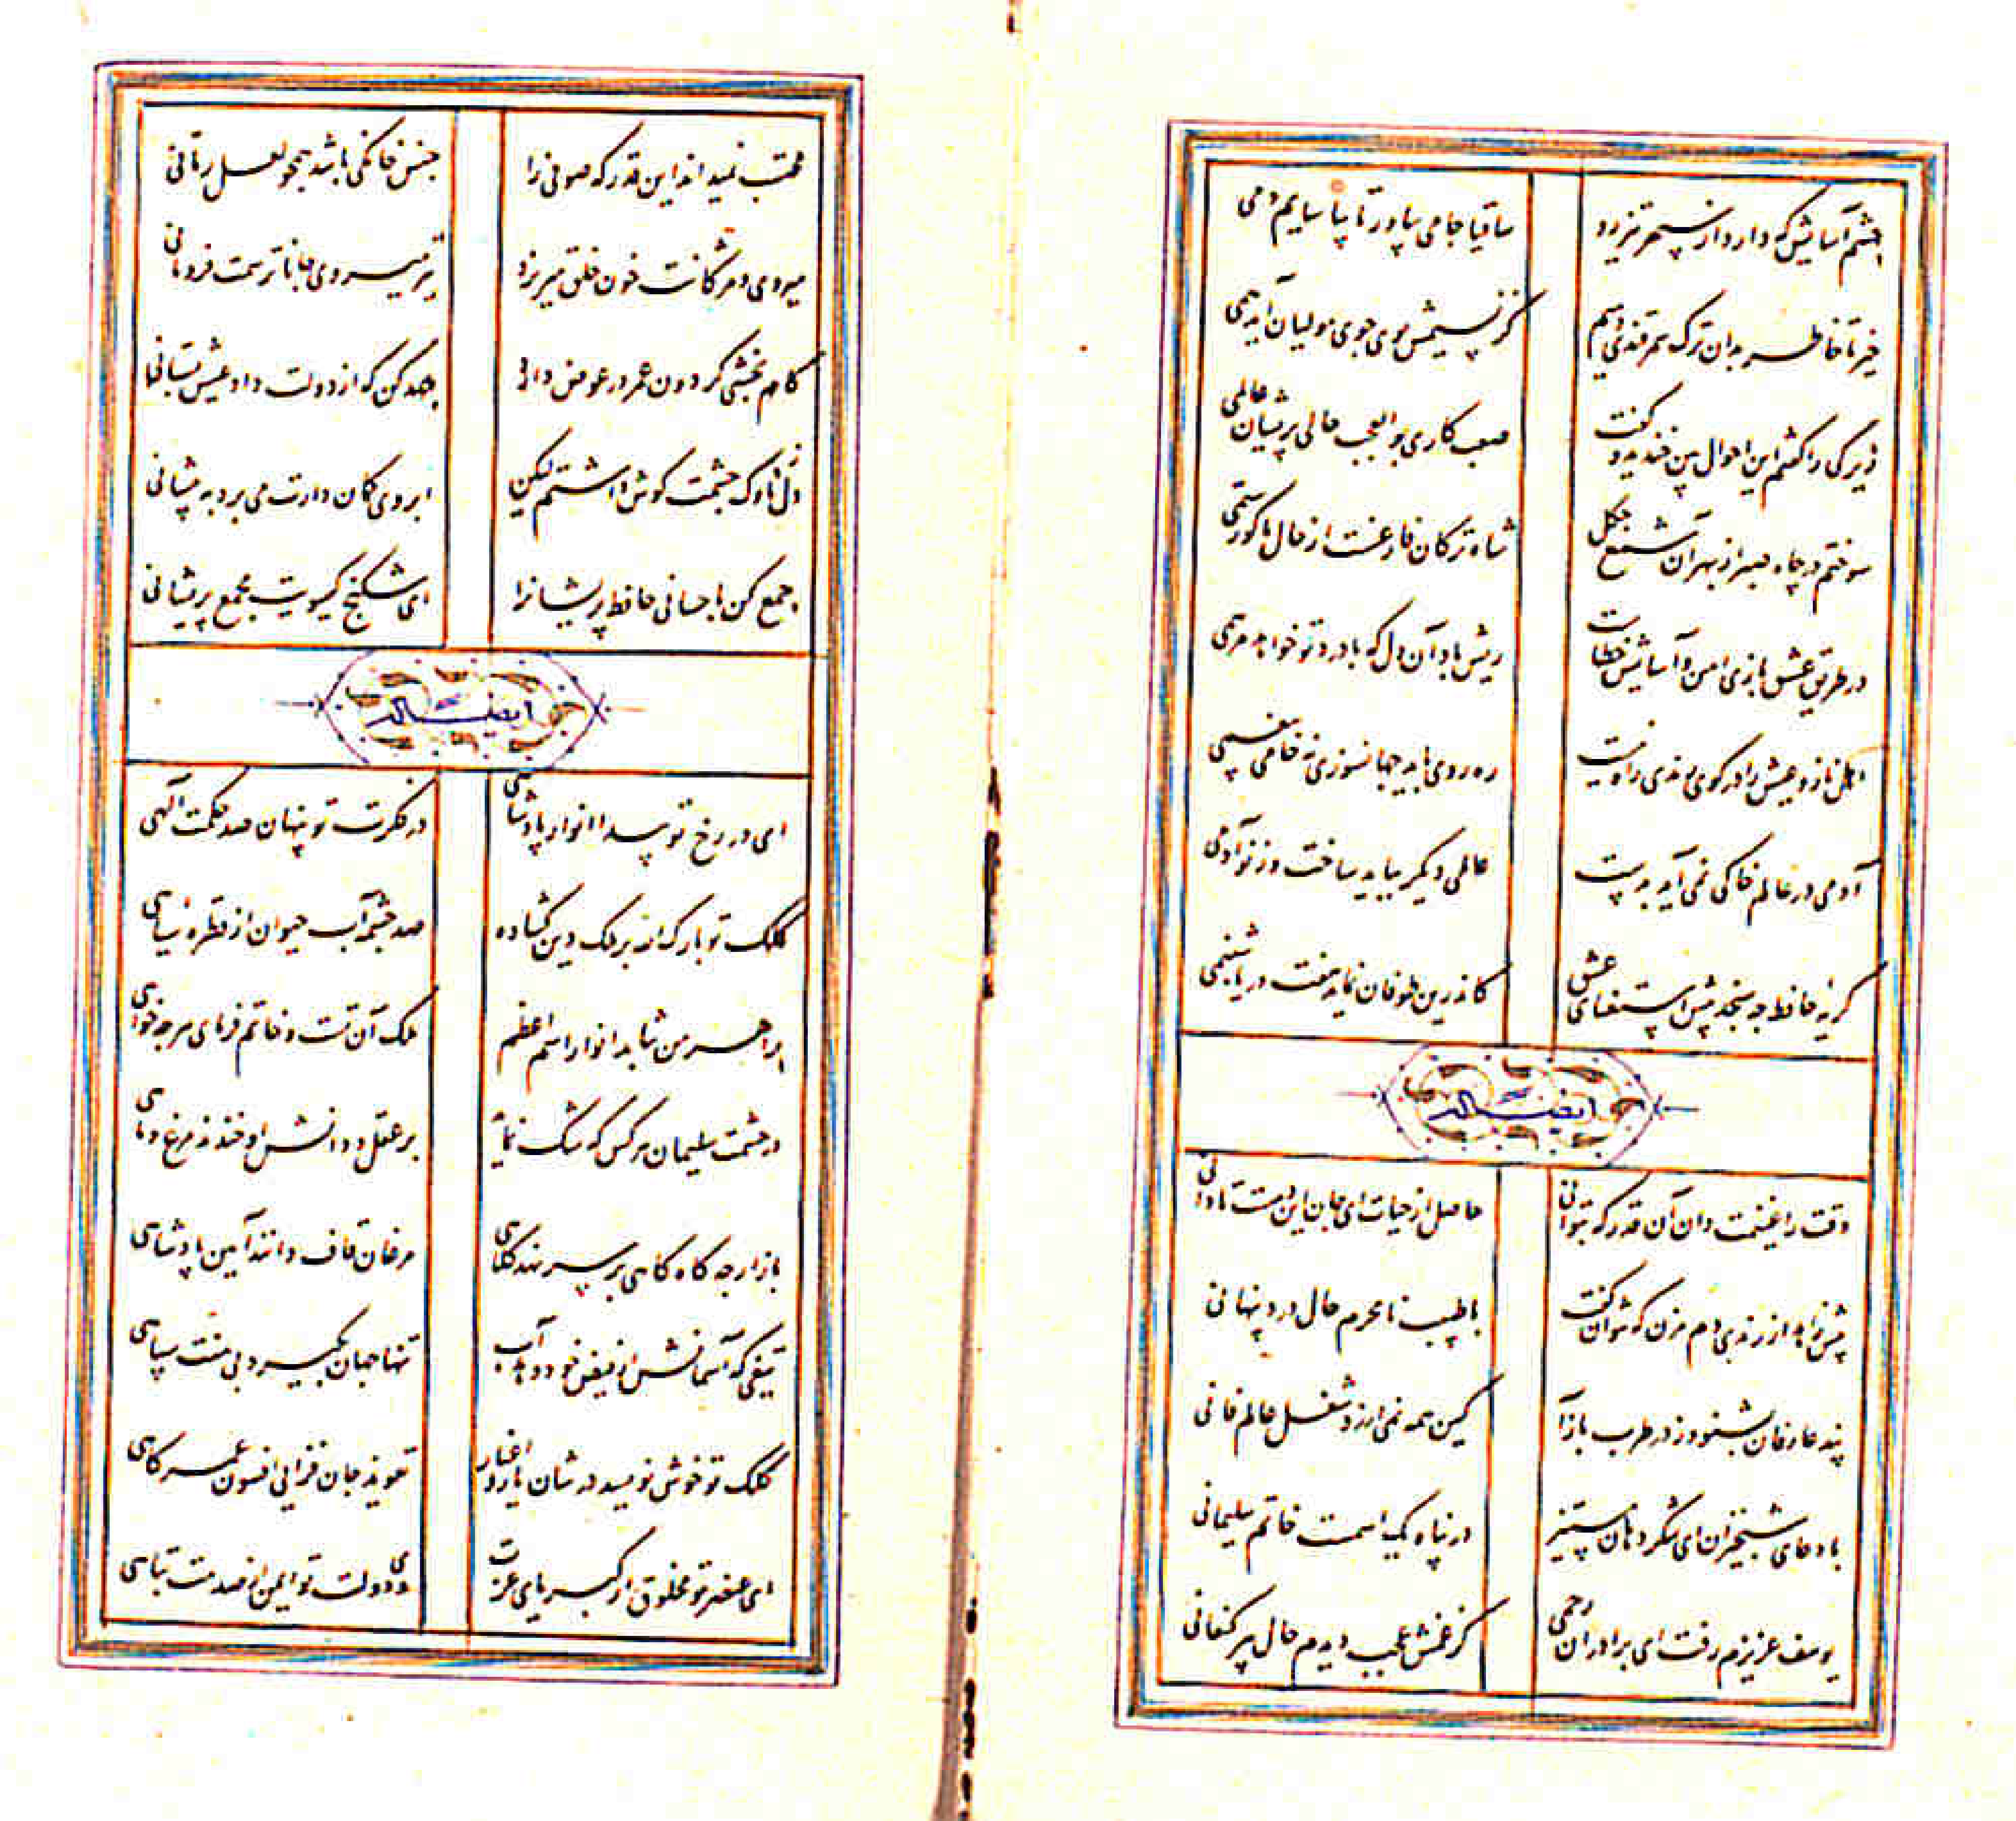 چشم آسایش که دارد از سپهر تیزرو
ساقیا جامی بیاور تا بیاسایم دمی
خیز تا خاطر بدان ترک سمرقندی دهیم
کز نسیمش بوی جوی مولیان آید همی
زیرکی را گفتم این احوال بین خندید و گفت
صعب کاری بوالعجب حالی پریشان عالمی
سوختم در چاه صبر از بهر آن شمع چگل
شاه ترکان فارغست از حال ما کو رستمی
در طریق عشق بازی امن و آسایش خطاست
ریش باد آن دل که با درد تو خواهد مرهمی
اهل ناز و عیش را در کوی رندی راه نیست
ره روی باید جهانسوزی نه خامی بیغمی
آدمی در عالم خاکی نمی آید بدست
عالمی دیگر بباید ساخت وز نو آدمی
گریه حافظ چه سنجد پیش استغنای عشق
کاندرین طوفان نماید هفت دریا شبنمی
ایضاً له
وقت را غنیمت دان آن قدر که بتوانی
حاصل از حیات ای جان این دمست تا دانی
پیش زاهد از رندی دم مزن که نتوان گفت
با طبیب نامحرم حال درد پنهانی
پند عارفان بشنو وز در طرب بازآ
کین همه نمی ارزد شغل عالم فانی
با دعای شبخیزان ای شکر دهان مستیز
در پناه یک اسمست خاتم سلیمانی
یوسف عزیزم رفت ای برادران رحمی
کز غمش عجب دیدم حال پیر کنعانی
محتسب نمیداند این قدر که صوفی را
جنس خانگی باشد همچو لعل رمانی
میروی و مژگانت خون خلق میریزد
تیز میروی جانا ترسمت فرومانی
کام بخشی گردون عمر در عوض دارد
جهد کن که از دولت داد عیش بستانی
دل ز ناوک چشمت گوش داشتم لیکن
ابروی کمان دارت می برد به پیشانی
جمع کن باحسانی حافظ پریشانرا
ای شکنج گیسویت مجمع پریشانی
ایضاً له
ای در رخ تو پیدا انوار پادشاهی
در فکرت تو پنهان صد حکمت آلهی
کلک تو بارک الله بر ملک و دین گشاده
صد چشمه آب حیوان از قطره سیاهی
بر اهرمن نتابد انوار اسم اعظم
ملک آن تست و خاتم فرمای هر چه خواهی
در حشمت سلیمان هر کس که شک نماید
بر عقل و دانش او خندند مرغ و ماهی
باز ار چه گاه گاهی بر سر نهد کلاهی
مرغان قاف دانند آیین پادشاهی
تیغی که آسمانش از فیض خود دهد آب
تنها جهان بگیرد بی منت سپاهی
کلک تو خوش نویسد در شان یار و اغیار
تعویذ جان فزایی افسون عمر کاهی
ای عنصر تو مخلوق از کبریای عزت
وی دولت تو ایمن از صدمت تباهی